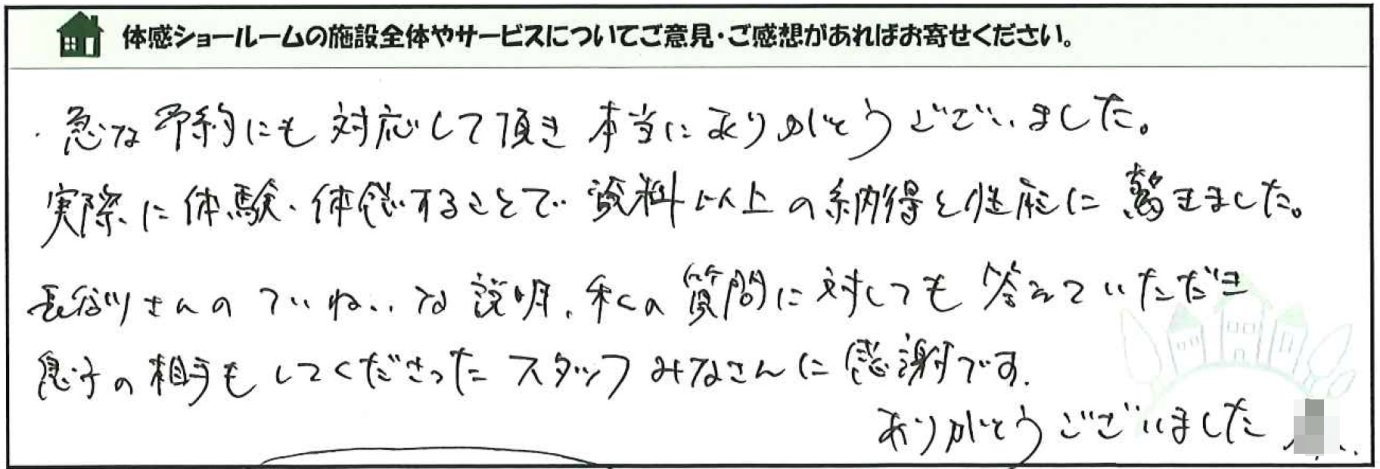 体感ショールームの施設全体やサービスについてご意見・ご感想があればお寄せください。
・急な予約にも対応して頂き本当にありがとうございました。
実際に体験、体感することで資料以上の納得と性能に驚きました。
長谷川さんのていねいな説明、私の質問に対しても答えていただき
息子の相手もしてくださったスタッフみなさんに感謝です。
ありがとうございました